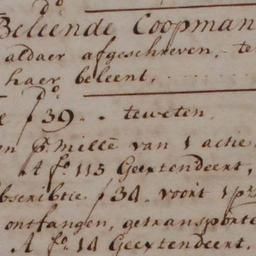 do
Beleende Coopman
aldaer afgeschreven, te
haer beleent,
do
f 39.. teweten.
en p Mille van 1 actie
A fo. 113 Geextendeert,
bscribtie f 34. voor 1 p
ontfangen, getransporte
A fo. 14 Geextendeert.